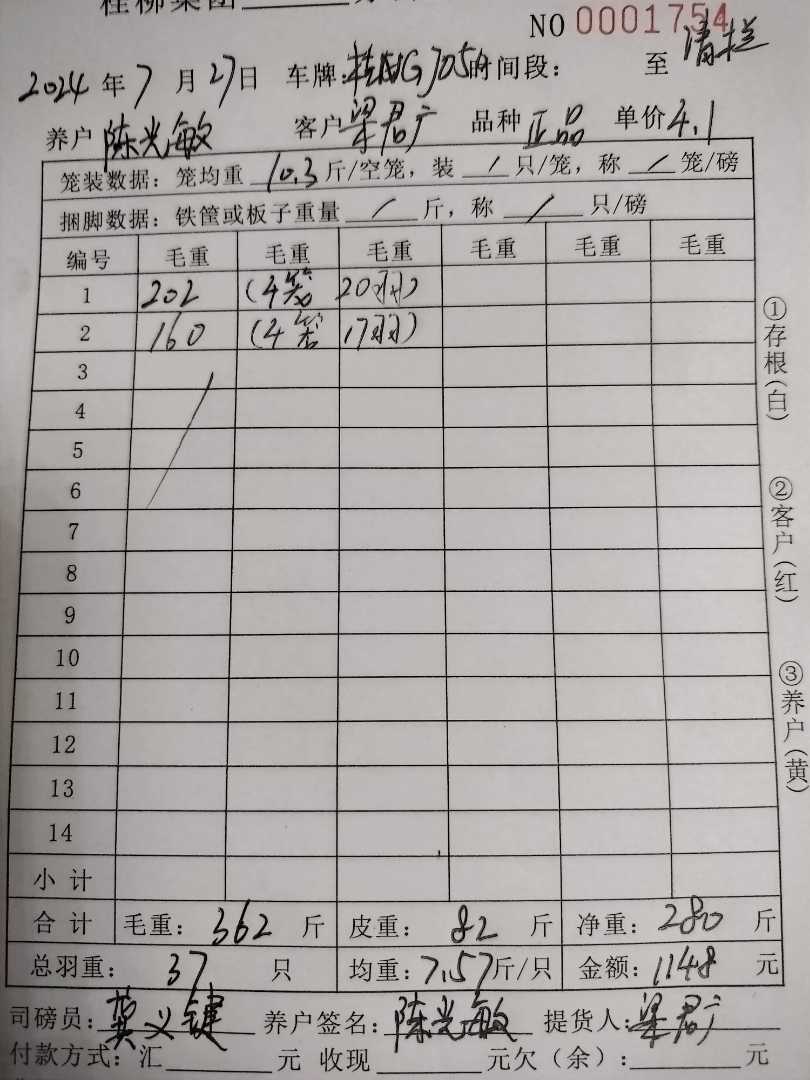 桂柳集团
NO 0001754
清栏
2024 年 7 月 27 日 车牌: 时间段: 至
养户 陈光敏 客户 梁君广 品种 正品 单价 4.1
笼装数据: 笼均重 10.3 斤/空笼, 装 / 只/笼, 称 / 笼/磅
捆脚数据: 铁筐或板子重量 / 斤, 称 / 只/磅
编号 毛重 毛重 毛重 毛重 毛重 毛重
1 202 (4笼 20羽)
2 160 (4笼 17羽)
3
4
5
6
7
8
9
10
11
12
13
14
小计
合计 毛重: 362 斤 皮重: 82 斤 净重: 280 斤
总羽重: 37 只 均重: 7.57 斤/只 金额: 1148 元
司磅员: 莫义键 养户签名: 陈光敏 提货人: 梁君广
付款方式: 汇 元 收现 元欠(余): 元
①存根(白)
②客户(红)
③养户(黄)